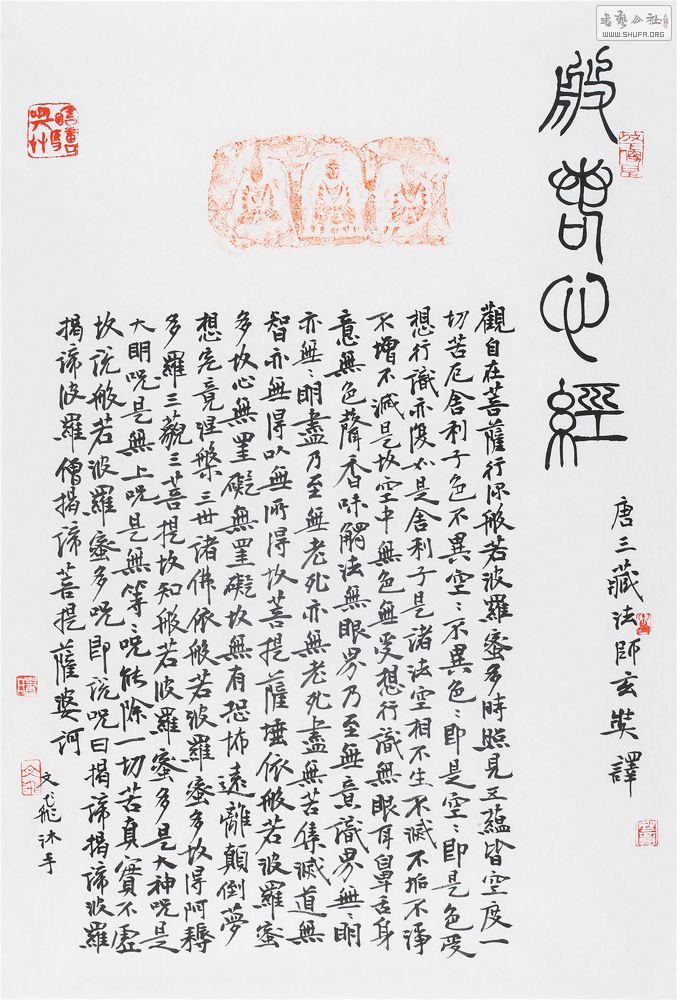 般若心經
唐三藏法師玄奘譯
觀自在菩薩行深般若波羅蜜多時照見五蘊皆空度一
切苦厄舍利子色不異空〻不異色〻即是空〻即是色受
想行識亦復如是舍利子是諸法空相不生不滅不垢不淨
不增不減是故空中無色無受想行識無眼耳鼻舌身
意無色聲香味觸法無眼界乃至無意識界無〻明
亦無〻明盡乃至無老死亦無老死盡無苦集滅道無
智亦無得以無所得故菩提薩埵依般若波羅蜜
多故心無罣礙無罣礙故無有恐怖遠離顛倒夢
想究竟涅槃三世諸佛依般若波羅蜜多故得阿耨
多羅三藐三菩提故知般若波羅蜜多是大神呪是
大明呪是無上呪是無等〻呪能除一切苦真實不虛
故說般若波羅蜜多呪即說呪曰揭諦揭諦波羅
揭諦波羅僧揭諦菩提薩婆訶
文飛沐手
書藝公社
WWW.SHUFA.ORG